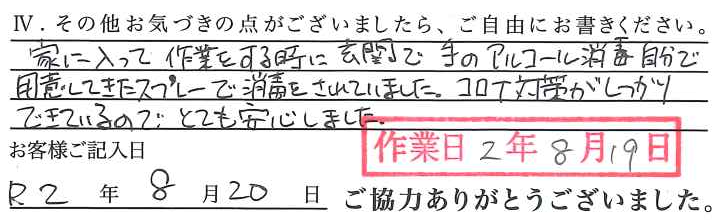 Ⅳ．その他お気づきの点がございましたら、ご自由にお書きください。
家に入って作業をする時に玄関で手のアルコール消毒自分で
用意してきたスプレーで消毒をされていました。コロナ対策がしっかり
できているのでとても安心しました。
お客様ご記入日
作業日2年8月19日
R2年8月20日 ご協力ありがとうございました。